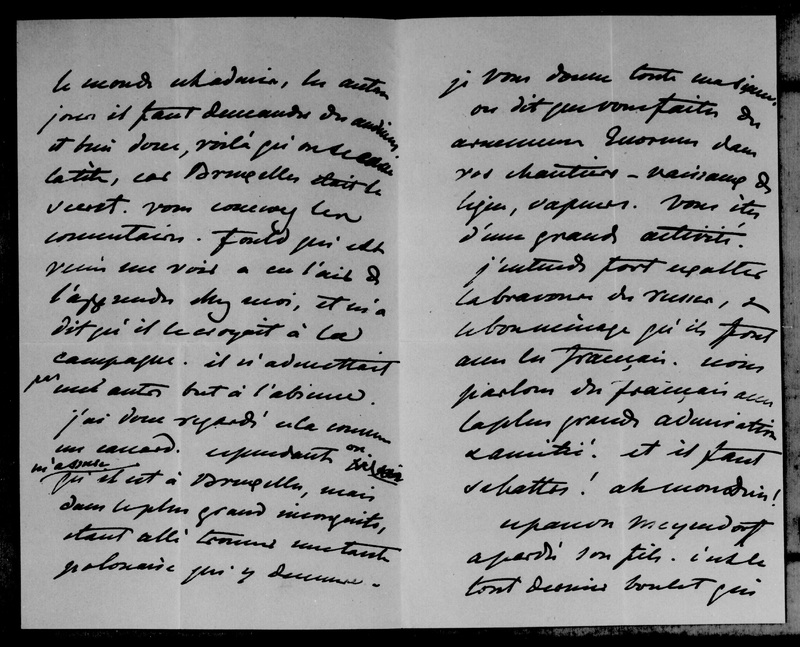 le monde et admis, les autres
jours il faut demander des audiences.
et bien donc, voilà qu'on se casse
la tête, car Bruxelles était le
secret. vous concevez les
commentaires. Fould qui est
venu me voir a eu l'air de
l'apprendre chez moi, et m'a
dit qu'il le croyait à la
campagne. il n'admettait
pas un autre but à l'absence.
j'ai donc regardé cela comme
un canard. cependant on
m'assure
qu'il est à Bruxelles, mais
dans le plus grand incognito,
étant allé trouver une tante
polonaise qui y demeure.
je vous donne toute ma
on dit que vous faites des
armemens énormes dans
vos chantiers - vaisseaux de
ligne, vapeurs. vous êtes
d'une grande activité.
j'entends fort exalter
la bravoure des russes, &
le bon ménage qu'ils font
avec les français. nous
parlons des français avec
la plus grande admiration
& amitié! et il faut
se battre! ah mon Dieu!
ce pauvre Meyendorff
a perdu son fils. c'est le
tout dernier boulet qui